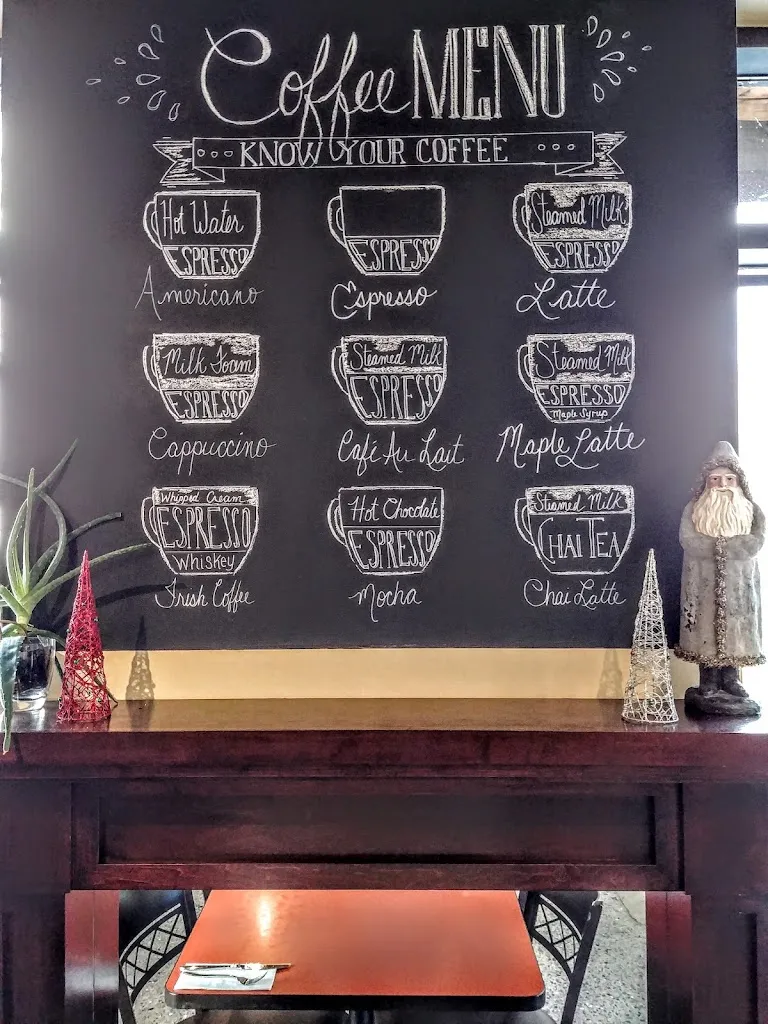 Coffee MENU
KNOW YOUR COFFEE
Hot Water
ESPRESSO
Americano
ESPRESSO
Espresso
Steamed Milk
ESPRESSO
Latte
Milk Foam
ESPRESSO
Cappuccino
Steamed Milk
ESPRESSO
Café Au Lait
Steamed Milk
ESPRESSO
Maple Syrup
Maple Latte
Whipped Cream
ESPRESSO
Whiskey
Irish Coffee
Hot Chocolate
ESPRESSO
Mocha
Steamed Milk
CHAI TEA
Chai Latte